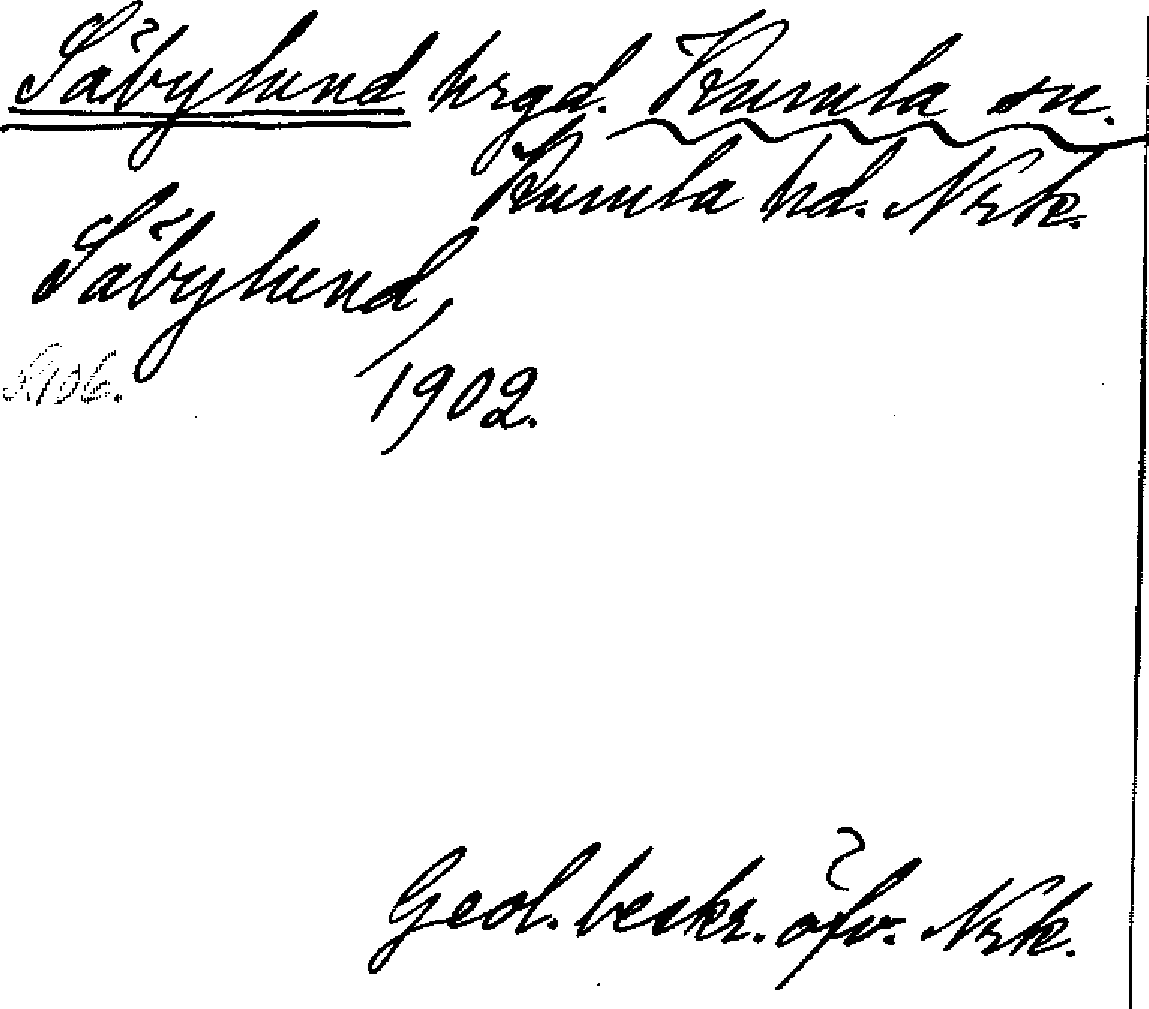 Säbylund hrgd. Kumla sn.
Kumla hd. Nrk.
Säbylund,
1902.
S. 106.
Geol. beskr. öfv. Nrk.